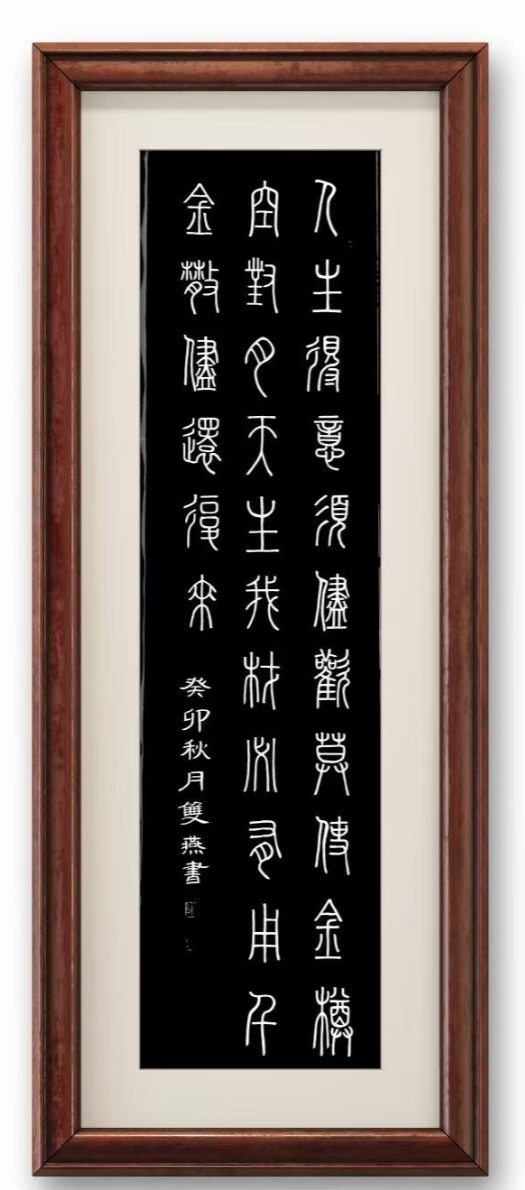 人生得意須儘歡莫使金樽
空對月天生我材必有用千
金散儘還復来
癸卯秋月雙燕書